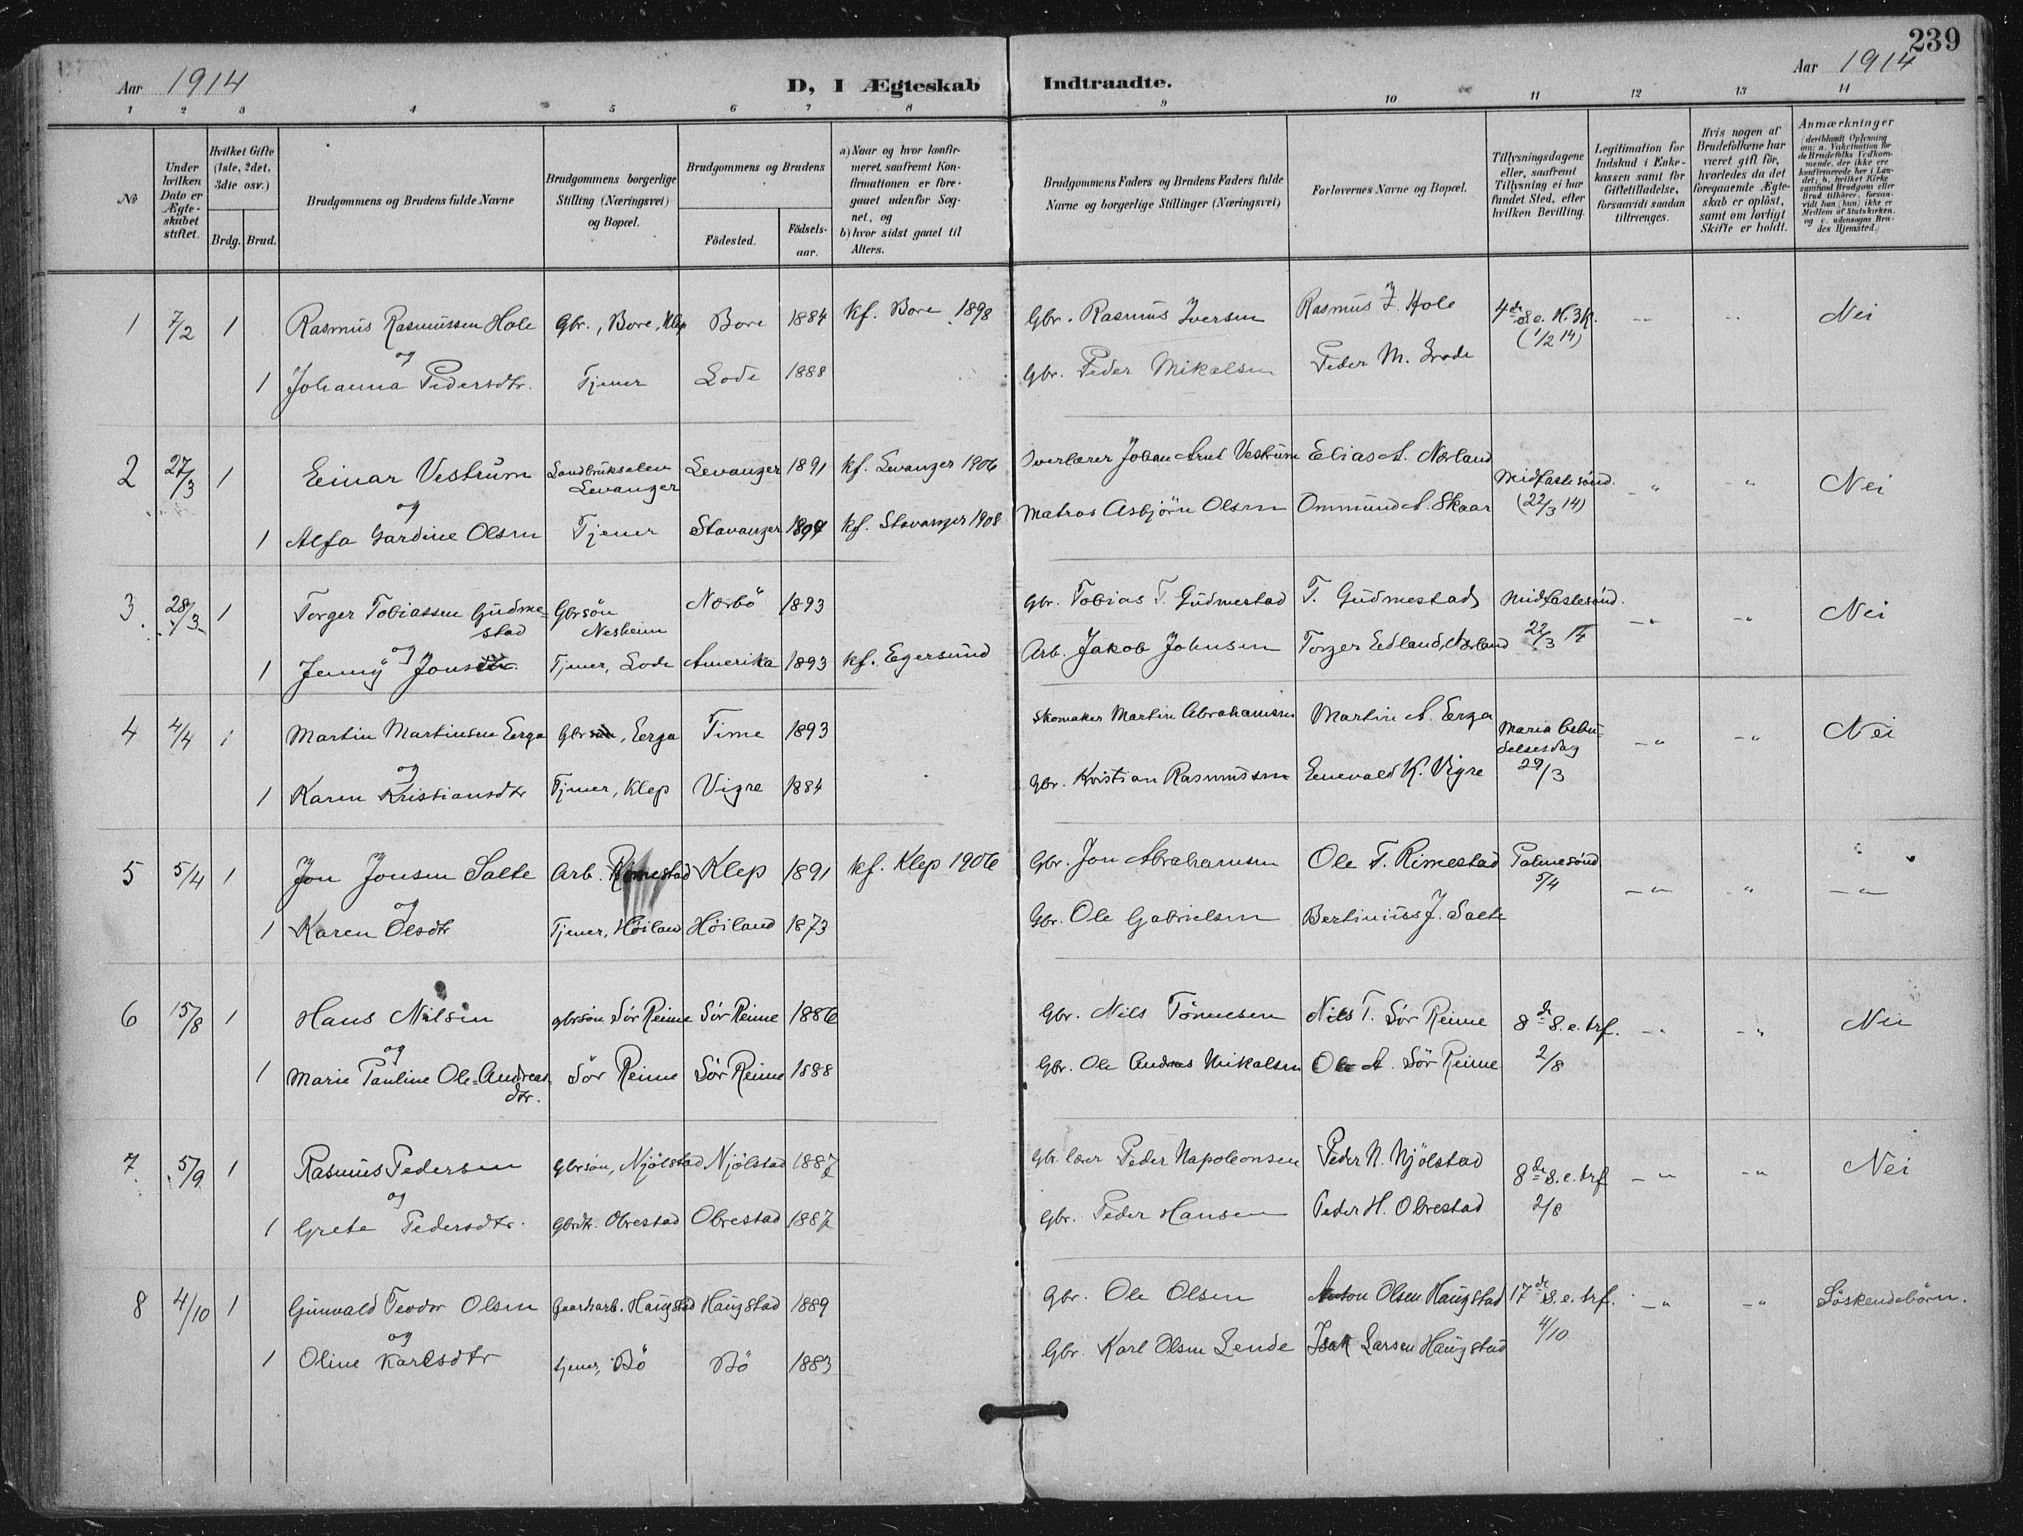 239
Aar 1914
D, I Ægteskab Indtraadte.
Aar 1914
1 2 3 4 5 6 7 8 9 10 11 12 13 14
No
Under hvilken Dato er Ægte-skabet stiftet.
Hvilket Gifte (1ste, 2det, 3die osv.)
Brdg. Brud.
Brudgommens og Brudens fulde Navne
Brudgommens borgerlige Stilling (Næringsvei) og Bopæl.
Brudgommens og Brudens
Födested.
Födsels-aar.
a) Naar og hvor konfir-meret, saafremt Kon-firmationen er fore-gaaet udenfor Sog-net, og
b) hvor sidst gaaet til Alters.
Brudgommens Faders og Brudens Faders fulde Navne og borgerlige Stillinger (Næringsvei)
Forlovernes Navne og Bopæl.
Tillysningsdagene eller, saafremt Tillysning ei har fundet Sted, efter hvilken Bevilling.
Legitimation for Indskud i Enke-kassen samt for Giftetilladelse, forsaavidt saadan tiltrænges.
Hvis nogen af Brudefolkene har været gift för, hvorledes da det foregaaende Ægte-skab er oplöst, samt om lovligt Skifte er holdt.
Anmærkninger (deriblandt Oplysning om: a. Vakcination for de Brudefolks Vedkom-mende, der ikke ere konfirmerede her i Lan-det; b. hvilket Kirke-samfund Brudgom eller Brud tilhører, forsaa-vidt han (hun) ikke er Medlem af Statskirken, og c. udensogns Bru-des Hjemsted.)
1 7/2 1 Rasmus Rasmussen Hole Gbr., Bore, Klep Bore 1884 kf. Bore 1898 Gbr. Rasmus Iversen Rasmus I. Hole 4de S. e. H. 3 K. (1/2 14) -"- -"- Nei
og
1 Johanna Pedersdtr. Tjener Lode 1888 Gbr. Peder Mikalsen Peder M. Lode
2 27/3 1 Einar Vestrum Landbrukselev Levanger Levanger 1891 kf. Levanger 1906 Overlærer Johan Arnt Vestrum Elias A. Nærland Midfastesönd. (22/3 14) -"- -"- Nei
og
1 Alfa Gardine Olsen Tjener Stavanger 1894 kf. Stavanger 1908 Matros Asbjörn Olsen Ommund A. Skaar
3 28/3 1 Torger Tobiassen Gudme-stad Gbrsön Nesheim Nærbö 1893 Gbr. Tobias T. Gudmestad T. Gudmestad Midfastesönd. 22/3 14 -"- -"- Nei
og
1 Jenny Jonsen Tjener, Lode Amerika 1893 kf. Egersund Arb. Jakob Johnsen Torger Edland, Nærland
4 4/4 1 Martin Martinsen Erga Gbrsön, Erga Time 1893 Skomaker Martin Abrahamsen Martin A. Erga Maria bebu-delsesdag 29/3 -"- -"- Nei
og
1 Karen Kristiansdtr Tjener, Klep Vigre 1884 Gbr. Kristian Rasmussen Enevald K. Vigre
5 5/4 1 Jon Jonsen Salte Arb. Rimestad Klep 1891 kf. Klep 1906 Gbr. Jon Abrahamsen Ole T. Rimestad Palmesönd 5/4 -"- -"- -"-
og
1 Karen Olsdtr Tjener, Höiland Höiland 1873 Gbr. Ole Gabrielsen Bertinius J. Salte
6 15/8 1 Hans Nilsen gbrsön Sör Reime Sör Reime 1886 Gbr. Nils Tönnesen Nils T. Sör Reime 8de S. e. trf. 2/8 -"- -"- Nei
og
1 Marie Pauline Ole-Andreas dtr. Sör Reime Sör Reime 1888 Gbr. Ole Andreas Mikalsen Ole A. Sör Reime
7 5/9 1 Rasmus Pedersen gbrsön, Njölstad Njölstad 1887 Gbr. lærer Peder Napoleonsen Peder N. Njölstad 8de S. e. trf 2/8 -"- -"- Nei
og
1 Greta Pedersdtr. Gbrdtr. Obrestad Obrestad 1887 Gbr. Peder Hansen Peder H. Obrestad
8 4/10 1 Gunvald Teodor Olsen Gaardarb. Haugstad Haugstad 1889 Gbr. Ole Olsen Anton Olsen Haugstad 17de S. e. trf. 4/10 -"- -"- Söskendebörn.
og
1 Oline Karlsdtr tjener, Bö Bö 1883 Gbr. Karl Olsen Lende Isak Larsen Haugstad